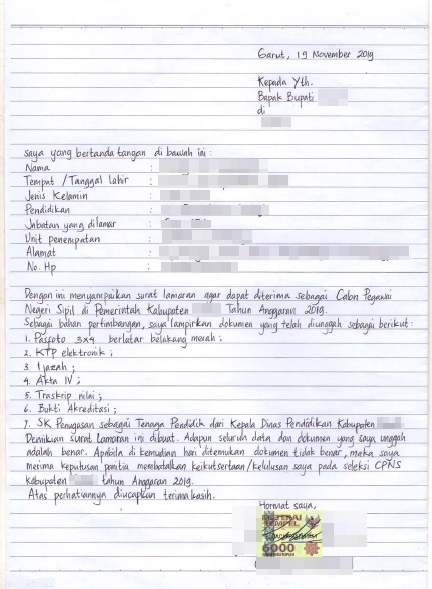 Garut, 19 November 2019
Kepada Yth.
Bapak Bupati
di
Saya yang bertanda tangan di bawah ini :
Nama :
Tempat / Tanggal Lahir :
Jenis Kelamin :
Pendidikan :
Jabatan yang dilamar :
Unit penempatan :
Alamat :
No. Hp :
Dengan ini menyampaikan surat lamaran agar dapat diterima sebagai Calon Pegawai
Negeri Sipil di Pemerintah Kabupaten Tahun Anggaran 2019.
Sebagai bahan pertimbangan, saya lampirkan dokumen yang telah diunggah sebagai berikut :
1. Pasfoto 3x4 berlatar belakang merah ;
2. KTP elektronik ;
3. Ijazah ;
4. Akta IV ;
5. Traskrip nilai ;
6. Bukti Akreditasi ;
7. SK Penugasan sebagai Tenaga Pendidik dari Kepala Dinas Pendidikan Kabupaten
Demikian surat lamaran ini dibuat. Adapun seluruh data dan dokumen yang saya unggah
adalah benar. Apabila di kemudian hari ditemukan dokumen tidak benar, maka saya
merima keputusan panitia membatalkan keikutsertaan/kelulusan saya pada seleksi CPNS
Kabupaten tahun Anggaran 2019.
Atas perhatiannya diucapkan terimakasih.
Hormat saya,
METERAI
TEMPEL
6000